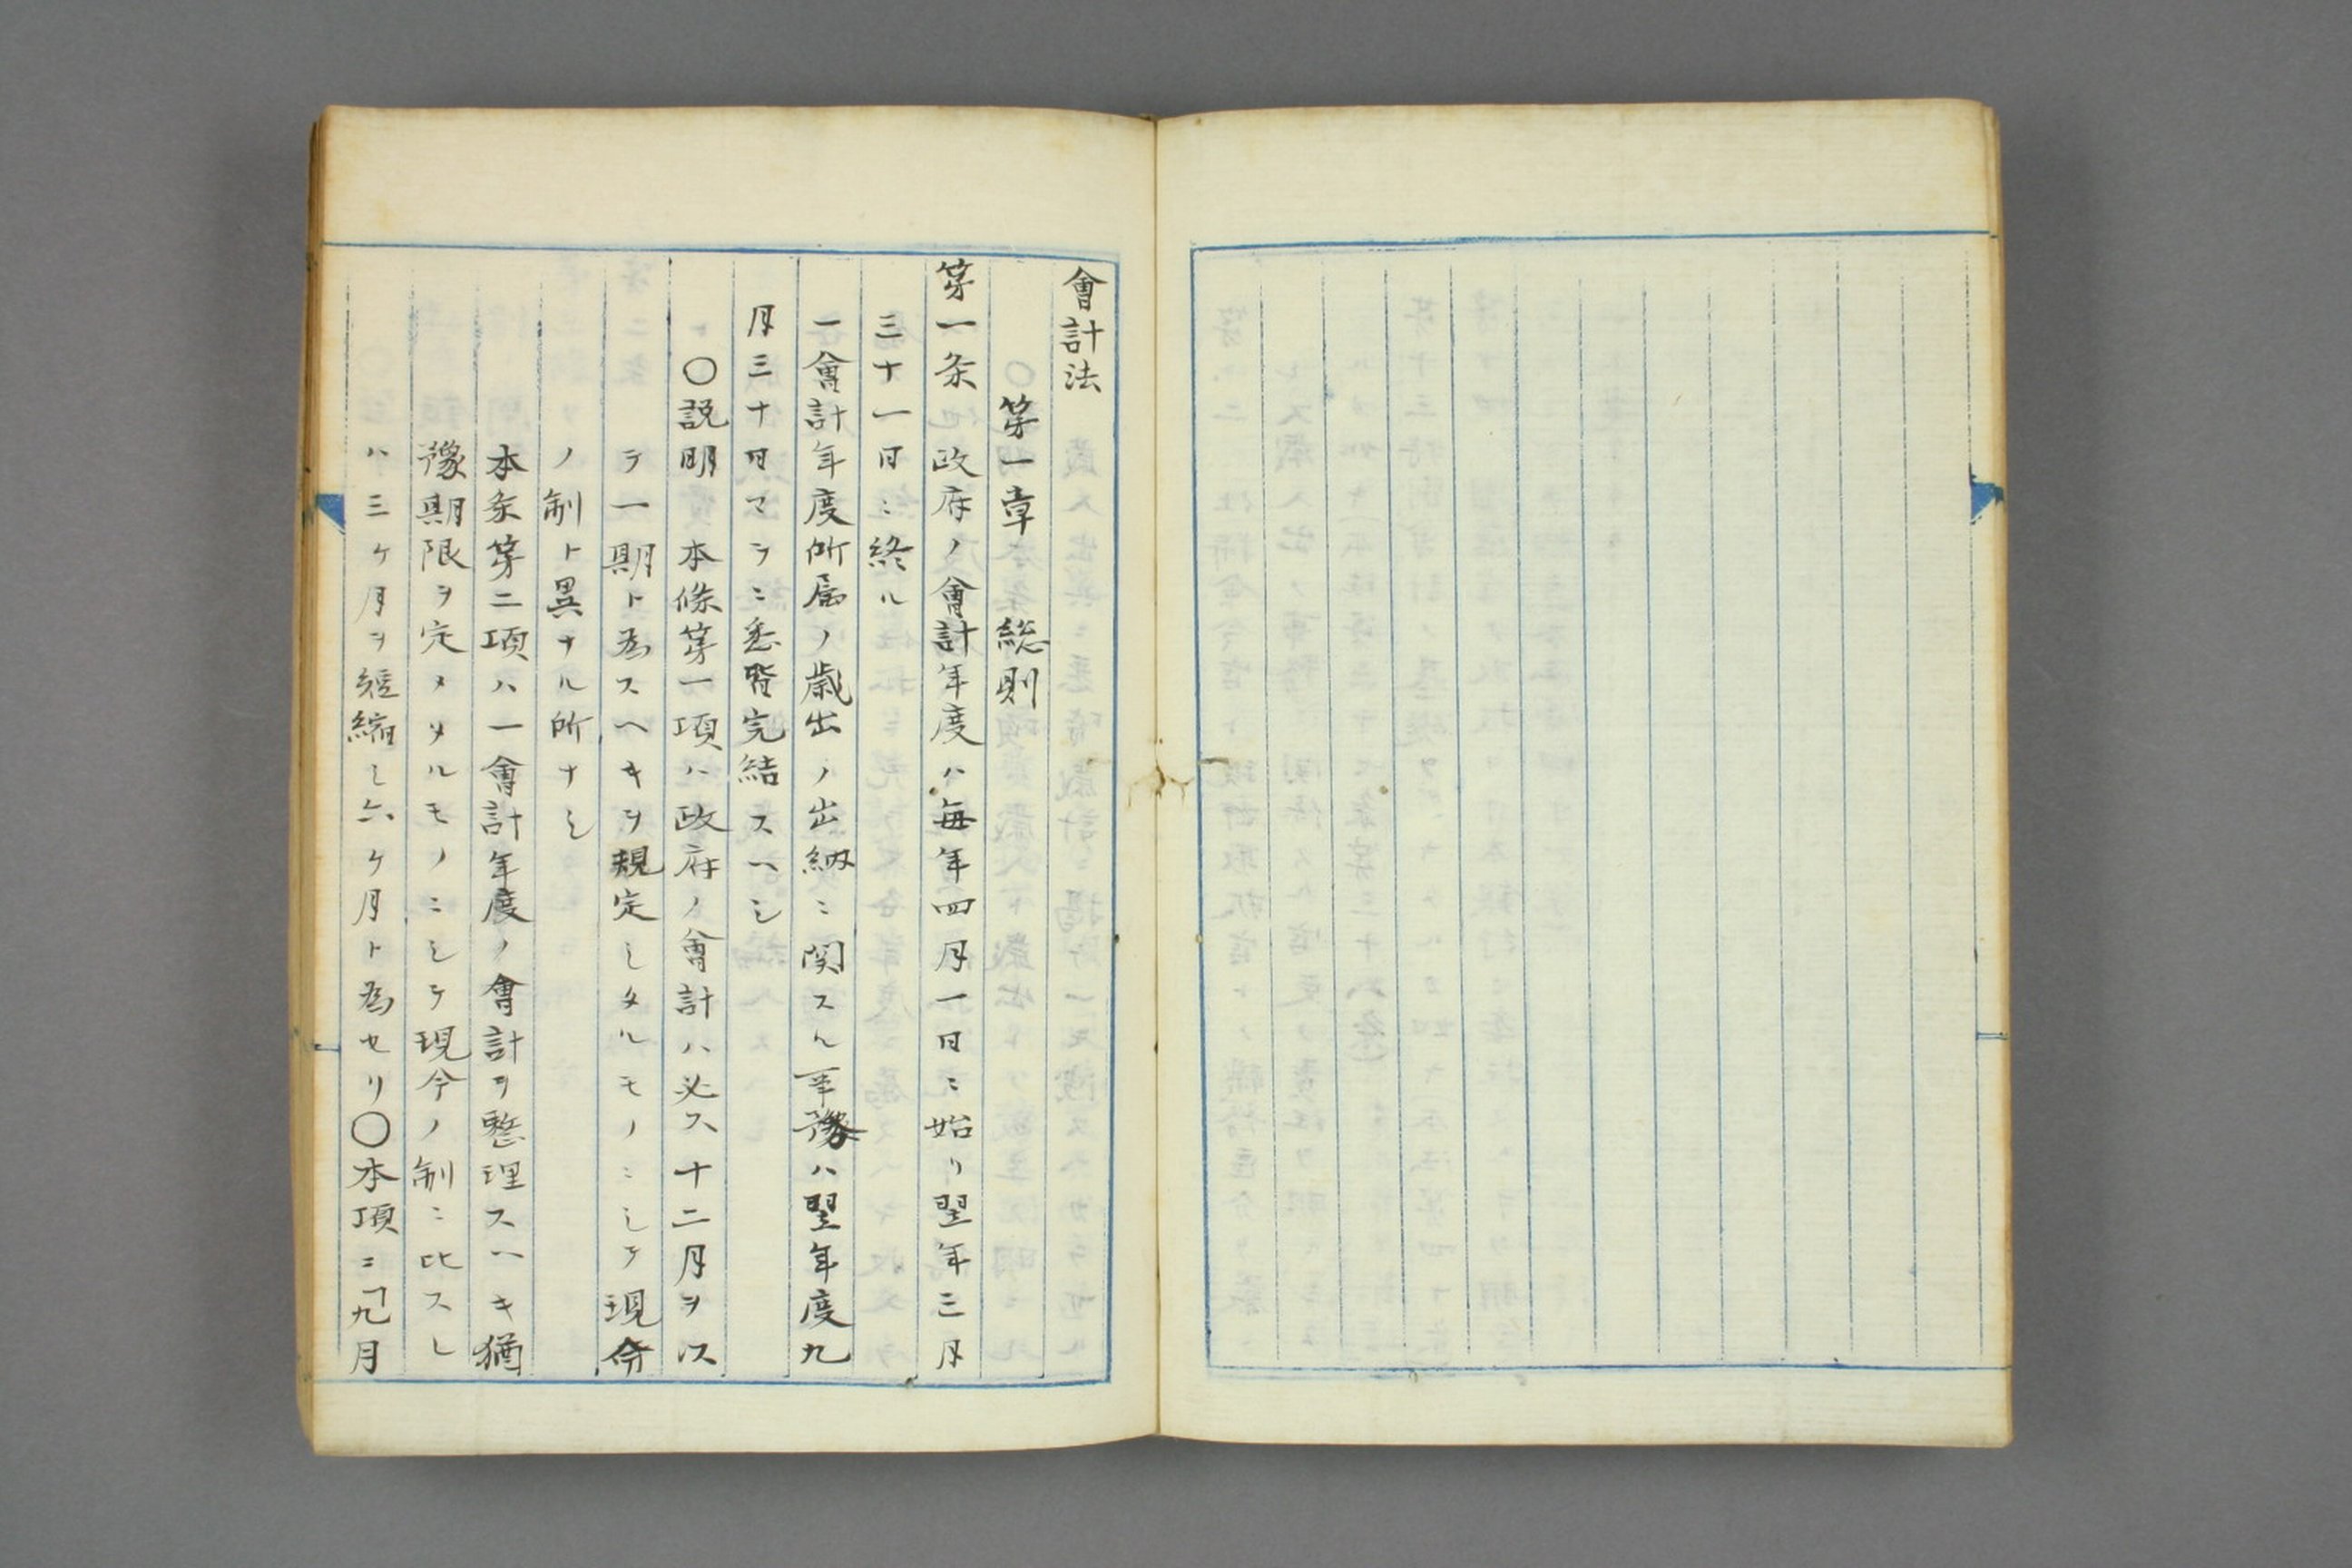 會計法
〇第一章 総則
第一条 政府ノ會計年度ハ毎年四月一日ニ始リ翌年三月
三十一日ニ終ル
一會計年度所属ノ歳出ノ出納ニ関スル事務ハ翌年度九
月三十日マテニ悉皆完結スヘシ
〇説明 本條第一項ハ政府ノ會計ハ必ス十二月ヲ以
テ一期ト為スヘキヲ規定シタルモノニシテ現今
ノ制ト異ナル所ナシ
本条第二項ハ一會計年度ノ會計ヲ整理スヘキ猶
豫期限ヲ定メタルモノニシテ現今ノ制ニ比スレ
ハ三ケ月ヲ短縮シ六ケ月ト為セリ〇本項ニ「九月